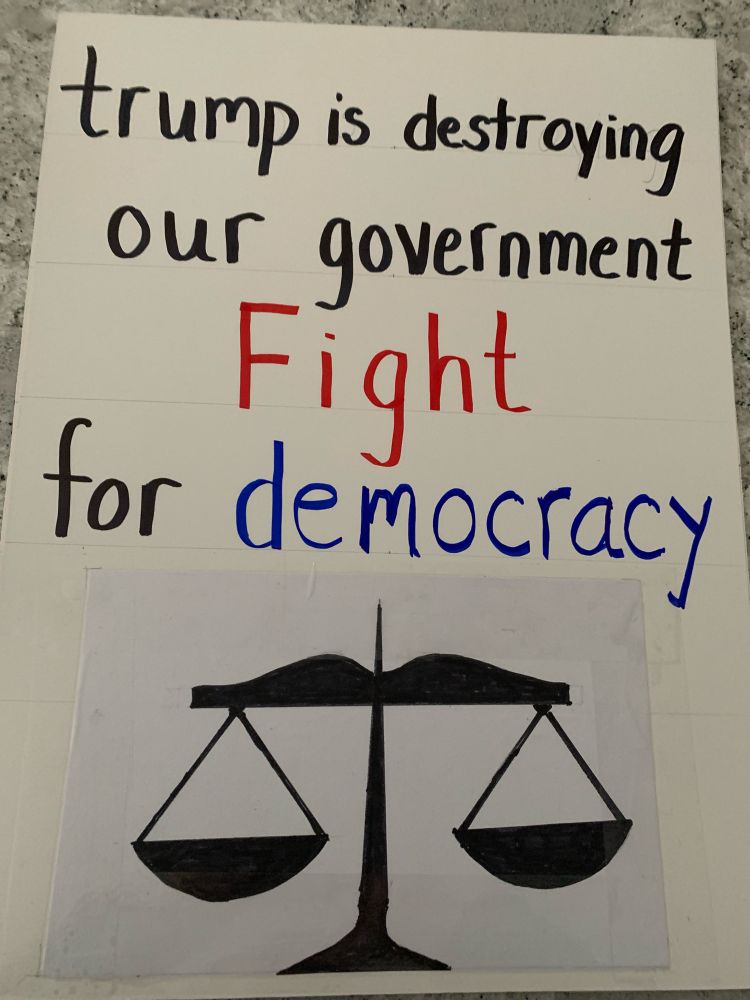 trump is destroying
our government
Fight
for democracy